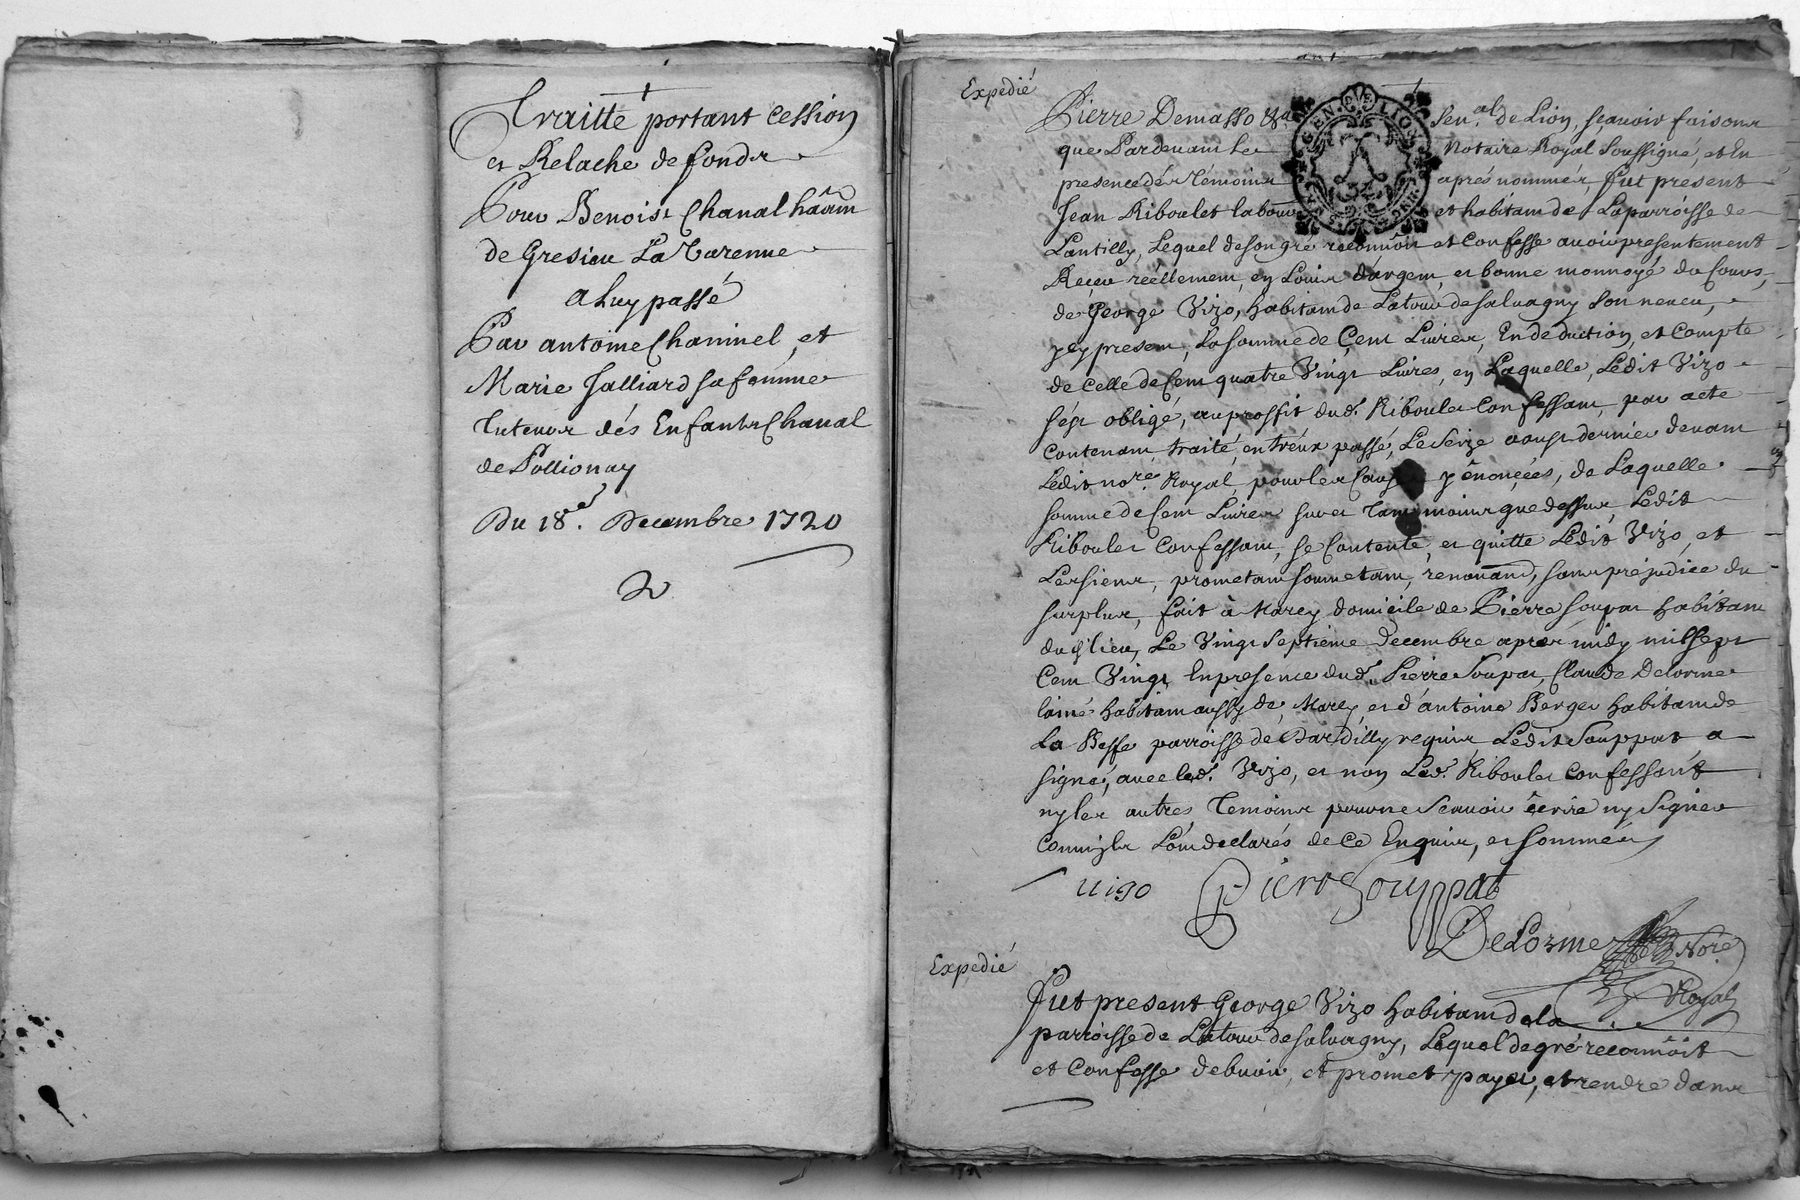 Traitté portant Cession
et Relache de fonds
Pour Benoist Chanal hâam
de Gresieu La Varenne
a luy passé
Par antoine Chaninel, et
Marie Jalliard sa femme
Tuteurs dés Enfants Chanal
de Pollionay
Du 18e. Decembre 1720
Expedié
Pierre Demasso &a Sen.al de Lion, sçavoir faisons
que Pardevant Le Notaire Royal Soussigné, et En
presence dés témoins aprés nommés, fut present
Jean Riboulet laboureur et habitant de La parroisse de
Lantilly, Lequel de son gré reconnôit et Confesse avoir presentement
Receu réellement, en Loüis d'argent, et bonne monnoyé du Cours,
de George Vizo, habitant de La tour de Salvagny son neveu,
ycy present, La somme de Cent Livres, En deduction, et Compte
de Celle de Cent quatre Vingt Livres, en Laquelle, Ledit Vizo
s'ést obligé, au proffit dud. Riboulet Confessant, par acte
Contenant traité, entréux passé, Le Seize aoust dernier devant
Ledit no.re Royal, pour les Causes y énoncées, de Laquelle
somme de Cent Livres sur et tant moins que dessus, Ledit
Riboulet Confessant, se Contente, et quitte Ledit Vizo, et
Les siens, prometant soumetant, renonçant, sans prejudice du
surplus, fait à Marcy domicile de Pierre Soupat habitant
dud. lieu, Le Vingt Septiéme Decembre aprés midy mil sept
Cent Vingt, En presence dud. Pierre Soupat, Claude Delorme
lainé habitant aussy de Marcy, et d'antoine Berger habitant de
La Beffe parroisse de Dardilly requis Ledit Souppat a
signé, avec led. Vizo, et non Led. Riboulet Confessant
ny les autres Temoins pour ne Scavoir écrire ny Signer
Comm'ils L'ont declarés de Ce Enquis, et sommés
uigo Pierre Souppat
DeLorme Nore
Royal
Expedié
fut present George Vizo habitant de la
parroisse de La tour de Salvagny, Lequel de gré reconnôit
et Confesse debvoir, et promet payer, et rendre dans